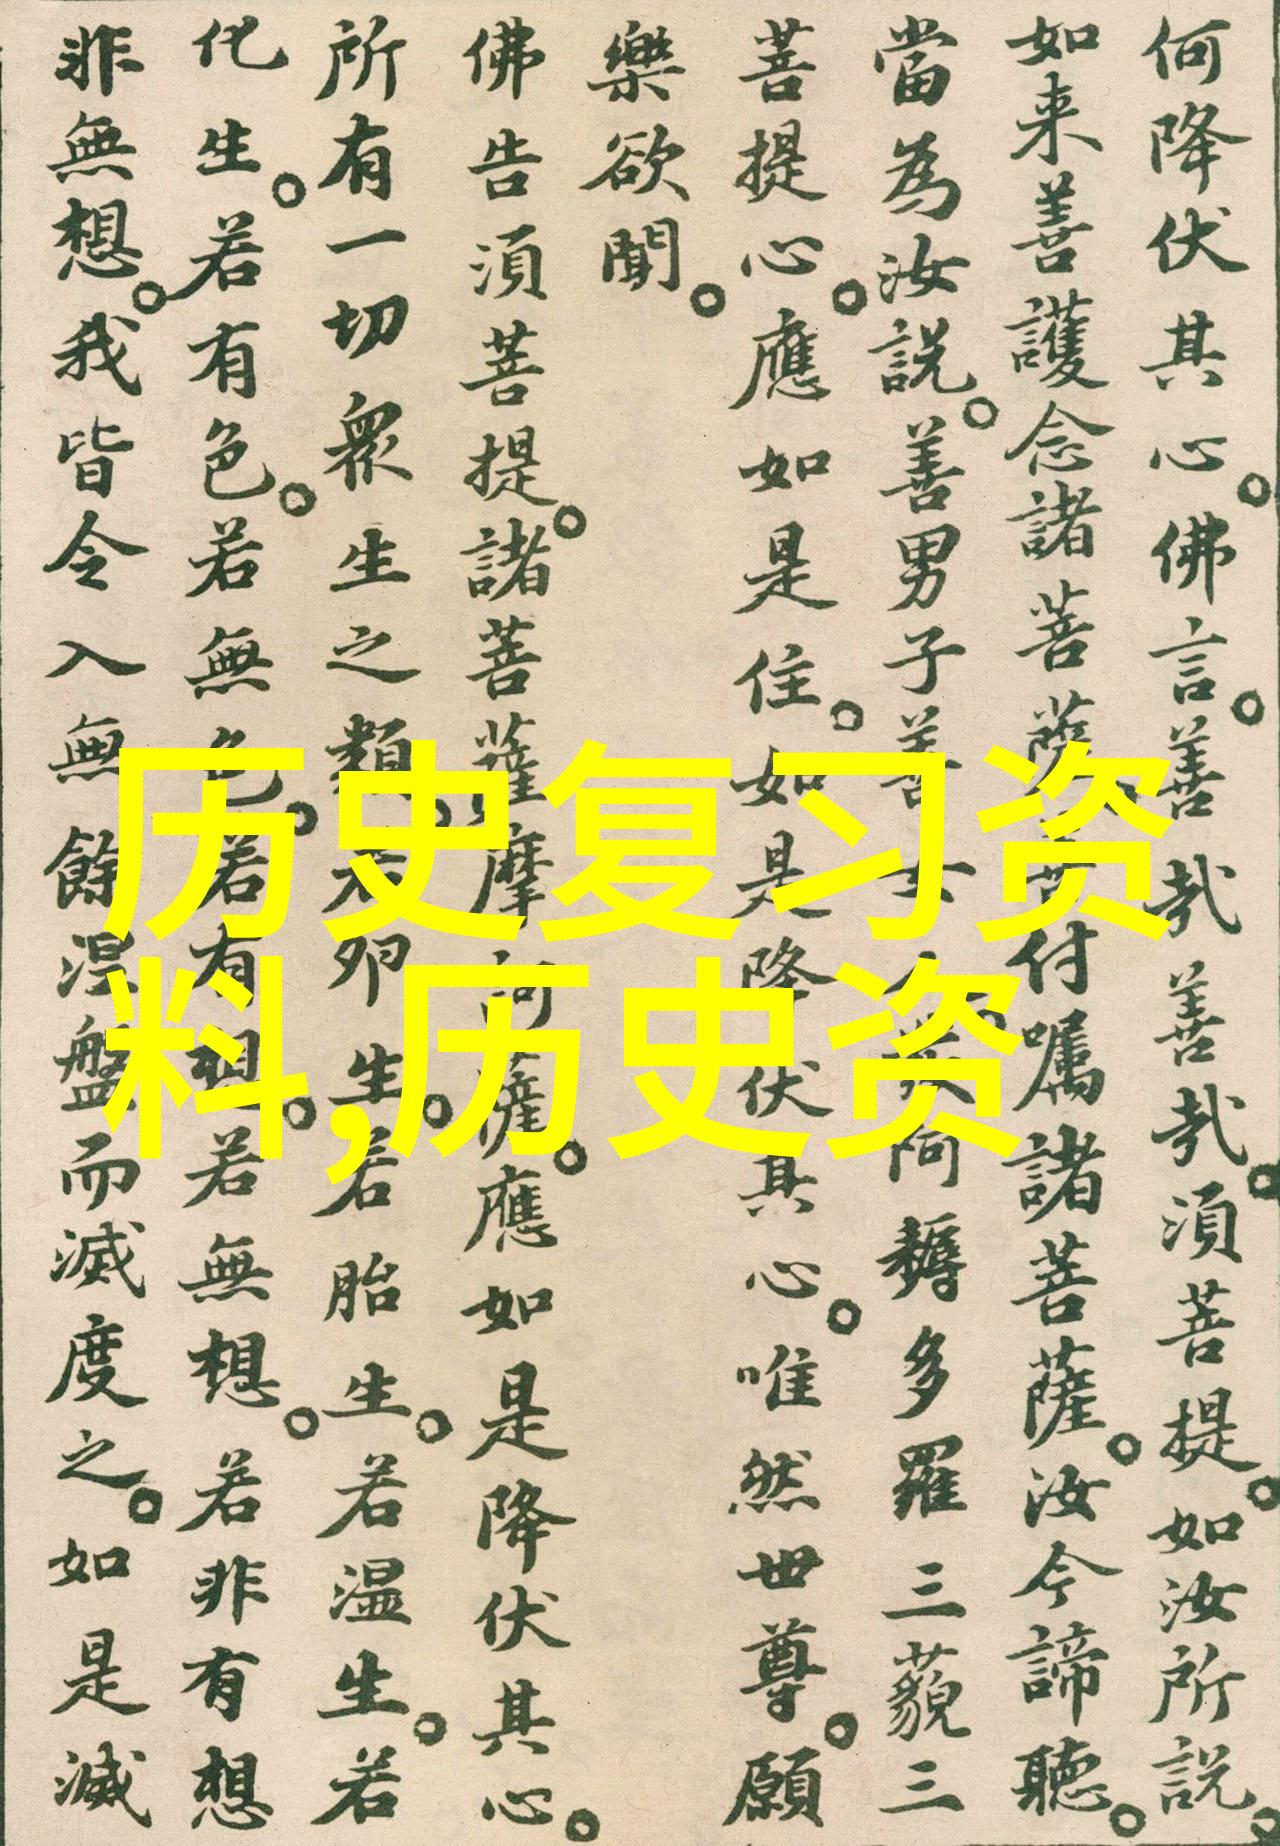 何降伏其心佛言善哉善哉須菩提如汝所説
如来善護念諸菩薩付嘱諸菩薩汝今諦聽
當為汝説善男子善女阿耨多羅三藐三
菩提心應如是住如是降伏其心唯然世尊願
樂欲聞
佛告須菩提諸菩薩摩訶薩應如是降伏其心
所有一切衆生之類若卵生若胎生若温生若
化生若有色若無色若有想若無想若非有想
非無想我皆令入無餘涅盤而滅度之如是滅
历史复习资
料,历史资